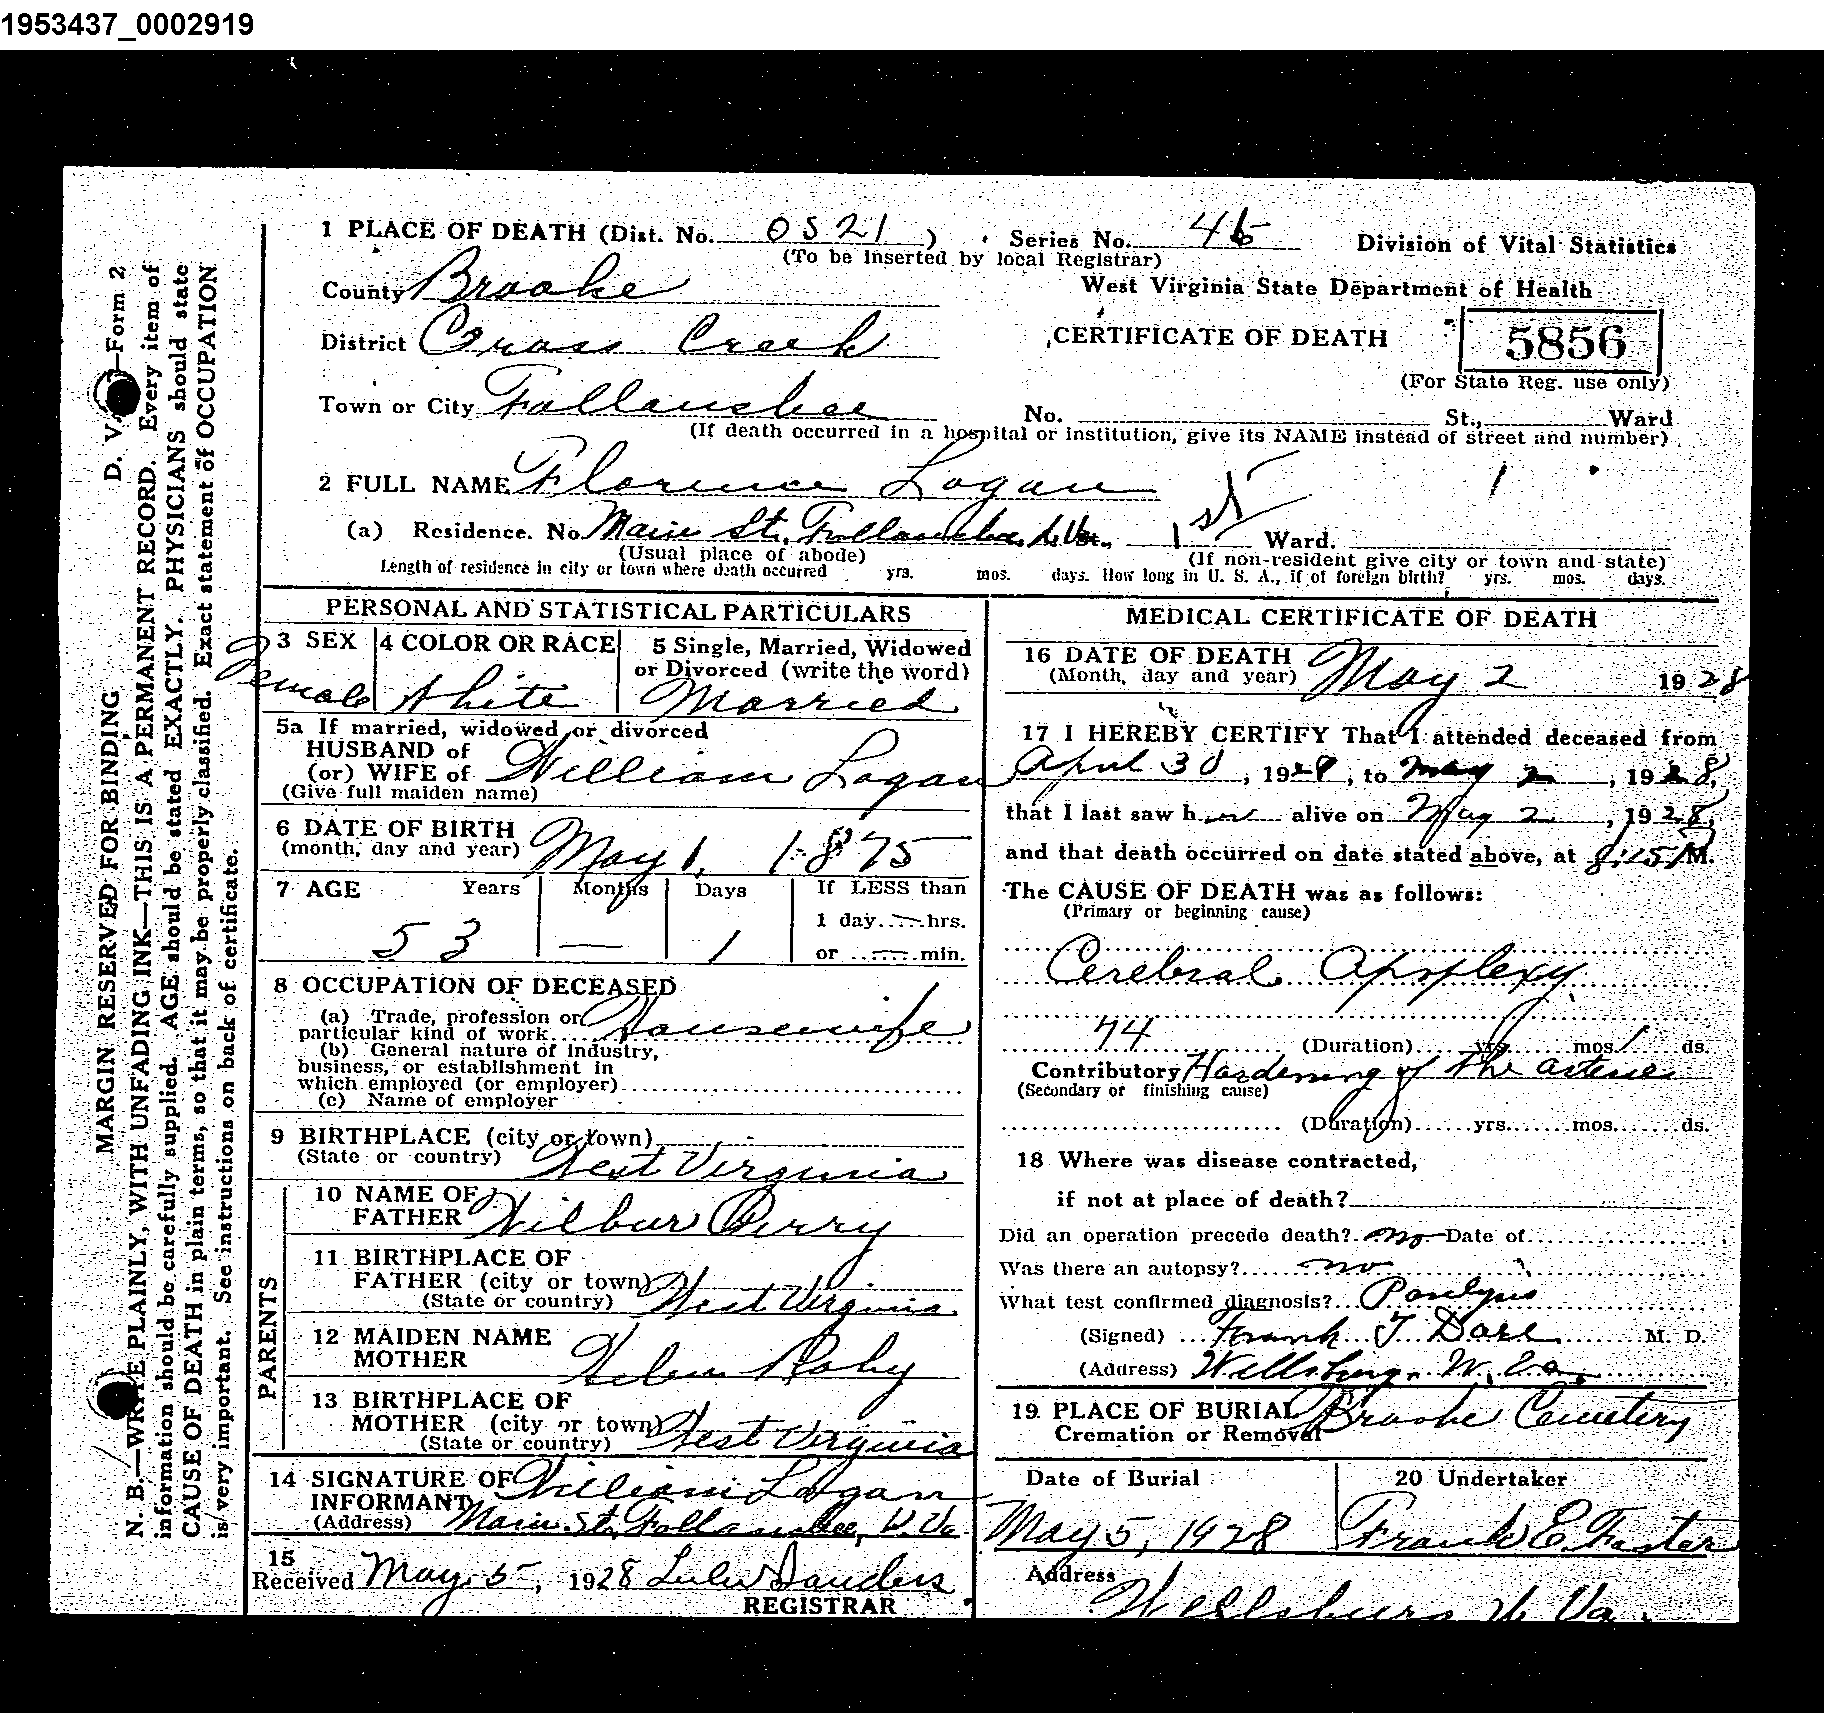 1953437_0002919
1 PLACE OF DEATH (Dist. No. 0521) Series No. 46 Division of Vital Statistics
(To be inserted by local Registrar)
County Brooke West Virginia State Department of Health
District Cross Creek CERTIFICATE OF DEATH 5856
(For State Reg. use only)
Town or City Follansbee No. St., Ward
(If death occurred in a hospital or institution, give its NAME instead of street and number)
2 FULL NAME Florence Logan
(a) Residence. No. Main St. Follansbee, W. Va. 1st Ward.
(Usual place of abode) (If non-resident give city or town and state)
Length of residence in city or town where death occurred yrs. mos. days. How long in U. S. A., if of foreign birth? yrs. mos. days.
PERSONAL AND STATISTICAL PARTICULARS
3 SEX 4 COLOR OR RACE 5 Single, Married, Widowed
or Divorced (write the word)
Female White Married
5a If married, widowed or divorced
HUSBAND of
(or) WIFE of William Logan
(Give full maiden name)
6 DATE OF BIRTH
(month, day and year) May 1, 1875
7 AGE Years Months Days If LESS than
1 day — hrs.
53 — 1 or — min.
8 OCCUPATION OF DECEASED
(a) Trade, profession or
particular kind of work Housewife
(b) General nature of industry,
business, or establishment in
which employed (or employer)
(c) Name of employer
9 BIRTHPLACE (city or town)
(State or country) West Virginia
PARENTS
10 NAME OF
FATHER Wilbur Perry
11 BIRTHPLACE OF
FATHER (city or town)
(State or country) West Virginia
12 MAIDEN NAME
MOTHER Helen Roby
13 BIRTHPLACE OF
MOTHER (city or town)
(State or country) West Virginia
14 SIGNATURE OF
INFORMANT William Logan
(Address) Main St, Follansbee, W. Va
15
Received May 5, 1928 Lulu Sanders
REGISTRAR
MEDICAL CERTIFICATE OF DEATH
16 DATE OF DEATH
(Month, day and year) May 2 1928
17 I HEREBY CERTIFY That I attended deceased from
April 30, 1928, to May 2, 1928,
that I last saw her alive on May 2, 1928,
and that death occurred on date stated above, at 8:15 M.
The CAUSE OF DEATH was as follows:
(Primary or beginning cause)
Cerebral Apoplexy
74 (Duration) yrs. mos. 1 ds.
Contributory Hardening of the arteries
(Secondary or finishing cause)
(Duration) yrs. mos. ds.
18 Where was disease contracted,
if not at place of death?
Did an operation precede death? no Date of
Was there an autopsy? no
What test confirmed diagnosis? Paralysis
(Signed) Frank T Dare M. D.
(Address) Wellsburg, W. Va.
19 PLACE OF BURIAL Brooke Cemetery
Cremation or Removal
Date of Burial 20 Undertaker
May 5, 1928 Frank E Foster
Address
Wellsburg W Va.
D. V. —Form 2
MARGIN RESERVED FOR BINDING
N. B.—WRITE PLAINLY, WITH UNFADING INK—THIS IS A PERMANENT RECORD. Every item of
information should be carefully supplied. AGE should be stated EXACTLY. PHYSICIANS should state
CAUSE OF DEATH in plain terms, so that it may be properly classified. Exact statement of OCCUPATION
is very important. See instructions on back of certificate.